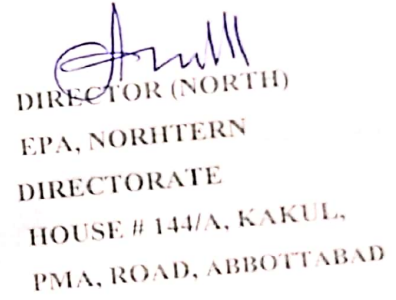 DIRECTOR (NORTH)
EPA, NORHTERN
DIRECTORATE
HOUSE # 144/A, KAKUL,
PMA, ROAD, ABBOTTABAD